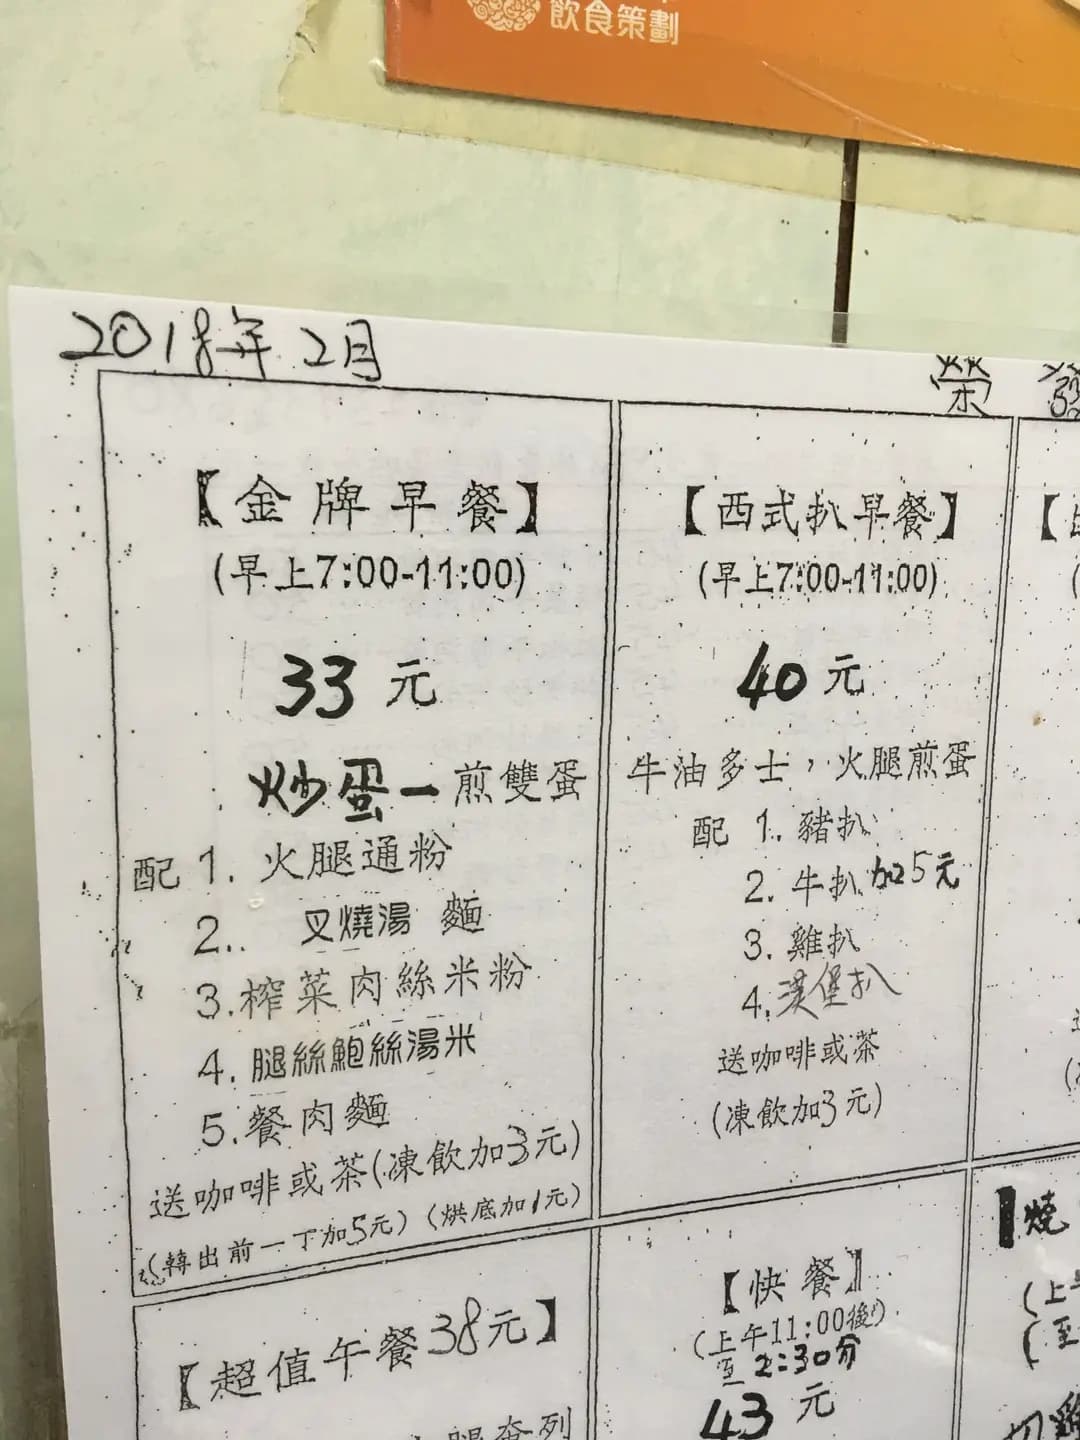 飲食策劃
2018年2月
榮 發
【金牌早餐】
(早上7:00-11:00)
33元
炒蛋一煎雙蛋
配 1. 火腿通粉
2.. 叉燒湯 麵
3.榨菜肉絲米粉
4.腿絲鮑絲湯米
5.餐肉麵
送咖啡或茶(凍飲加3元)
(轉出前一丁加5元)(烘底加1元)
【西式扒早餐】
(早上7:00-11:00)
40元
牛油多士，火腿煎蛋
配 1. 豬扒
2. 牛扒加5元
3. 雞扒
4.漢堡扒
送咖啡或茶
(凍飲加3元)
【超值午餐38元】
【快餐】
(上午11:00後)
至2:30分
43元
燒
(上午
(至
切雞